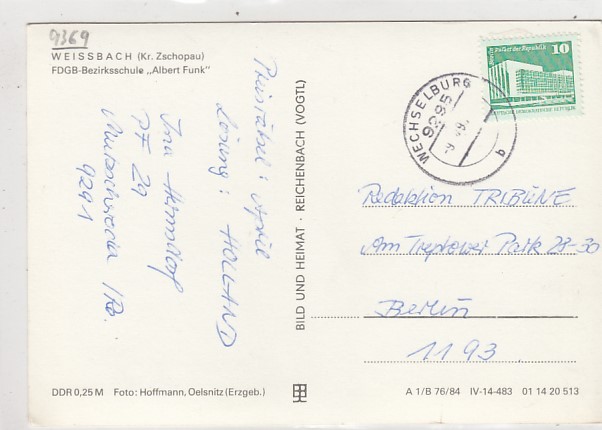 9369
WEISSBACH (Kr. Zschopau)
FDGB-Bezirksschule „Albert Funk"
Preisrätsel: April
Lösung: HOLLAND
Ina
PF 29
9291
BILD UND HEIMAT · REICHENBACH (VOGTL)
Berlin Palast der Republik 10
DEUTSCHE DEMOKRATISCHE REPUBLIK
WECHSELBURG
9295
b
Redaktion TRIBÜNE
Am Treptower Park 28-30
Berlin
1193
DDR 0,25 M Foto: Hoffmann, Oelsnitz (Erzgeb.)
A 1/B 76/84 IV-14-483 01 14 20 513